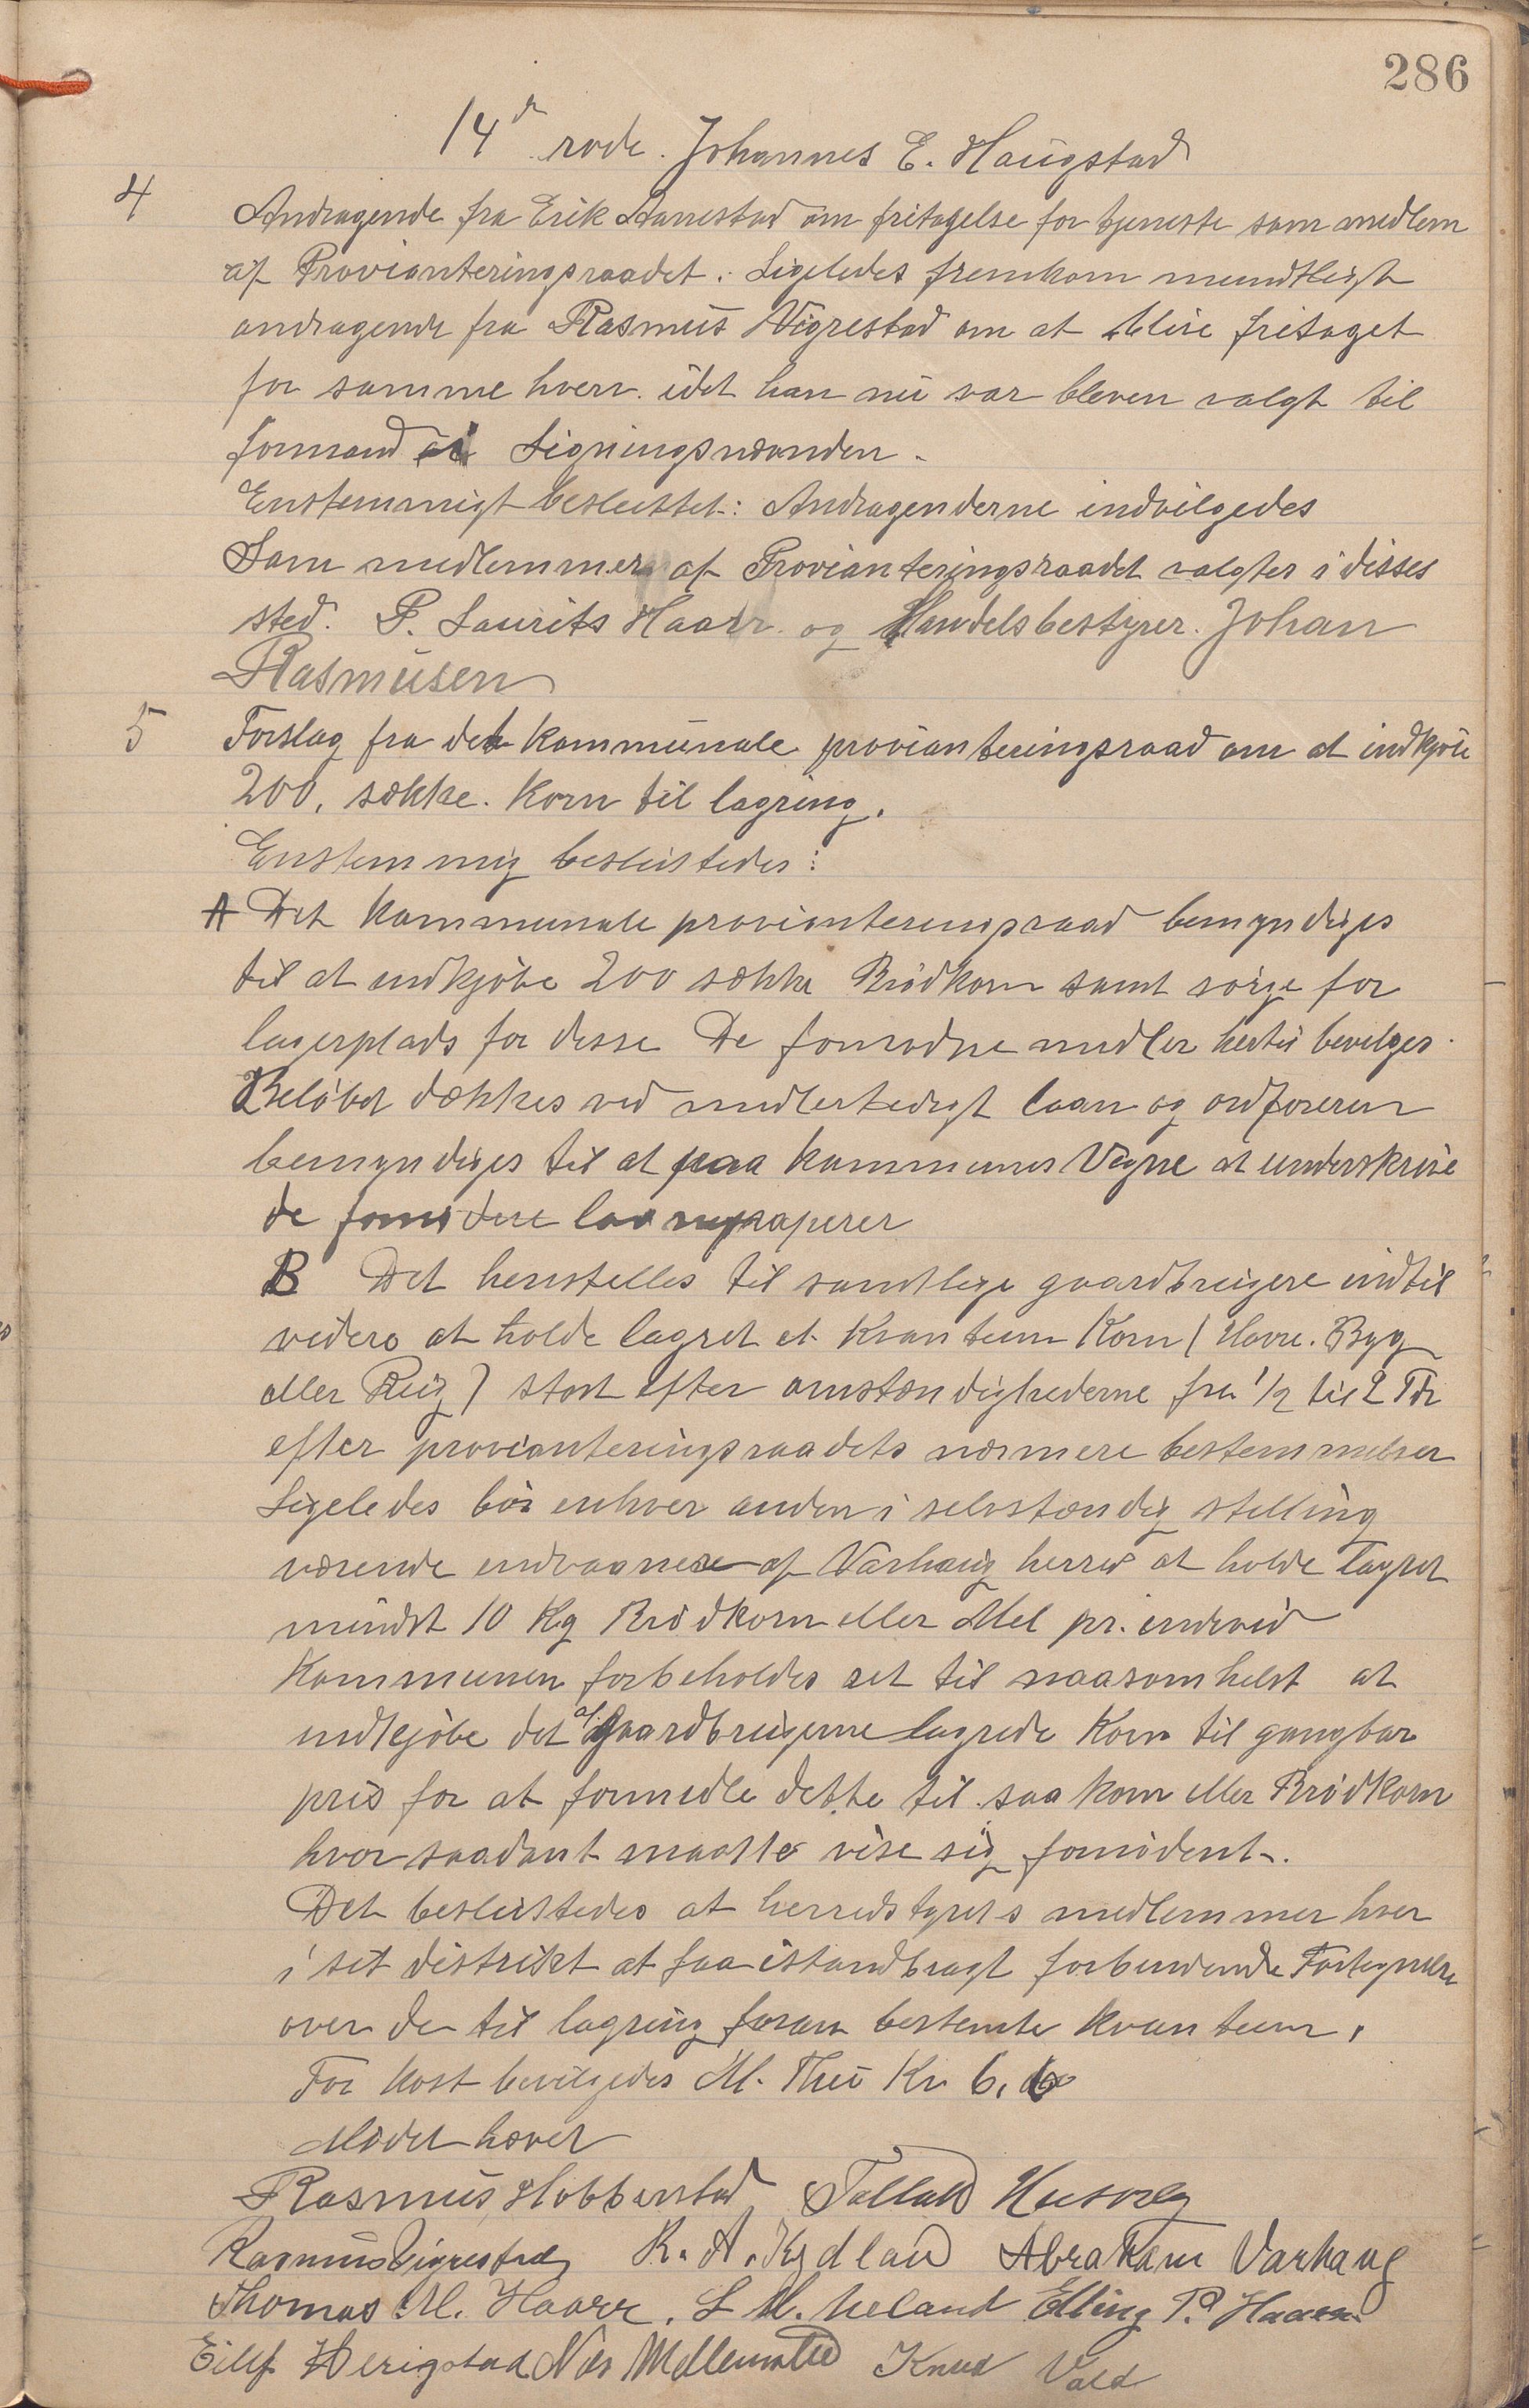 286
14d rode. Johannes E. Haugstad
4 Andragende fra Erik Aanestad om fritagelse for tjeneste som medlem
af Provianteringsraadet. Ligeledes fremkom mundtligt
andragende fra Rasmus Vigrestad om at blive fritaget
for samme hverv. idet han nu var bleven valgt til
formand i Ligningsnævnden.
Enstemmigt besluttet: Andragenderne indvilgedes
Som medlemmer af Provianteringsraadet valgtes i disses
sted. P. Laurits Haarr og Handelsbestyrer. Johan
Rasmusen
5 Forslag fra det Kommunale provianteringsraad om at indkjøbe
200, sække. Korn til lagring.
Enstemmig beslutstedes:
A Det Kommunale provianteringsraad bemyndiges
til at indkjøbe 200 sække Brødkorn samt sørge for
lagerplads for disse De fornødne midler hertil bevilges.
Beløbet dækkes ved midlertidigt laan og ordføreren
bemyndiges til at paa kommunens Vegne at underskrive
de fornødne laanepaperer
B Det henstilles til samtlige gaardbrugere indtil
videre at holde lagret et Kvantum Korn (Havre. Byg
eller Rug) stort efter omstændighederne fra 1/2 til 2 Tdr
efter provianteringsraadets nærmere bestemmelser
Ligeledes bør enhver anden i selvstændig stilling
værende indvaanere af Varhaug herred at holde lagret
mindst 10 Kg Brødkorn eller Mel pr. individ
Kommunen forbeholdes ret til naarsomhelst at
indkjøbe det af Gaardbrugerne lagrede Korn til gangbar
pris for at formidle dette til saakorn eller Brødkorn
hvor saadant maatte vise sig fornødent.
Det beslutstedes at herredstyrets medlemmer hver
i sit distrikt at faa istandbragt forbindende Fortegnelse
over de til lagring foran bestemte kvantum.
For kost bevilgedes M. Thu Kr. 6,
Mødet hævet
Rasmus Hobberstad Tallak Husveg
Rasmus Vigrestad R. A. Kydland Abraham Varhaug
Thomas M. Haarr. L M. Meland Elling P. Haarr
Eilif Herigstad Nils Mellemstad Knud Vold